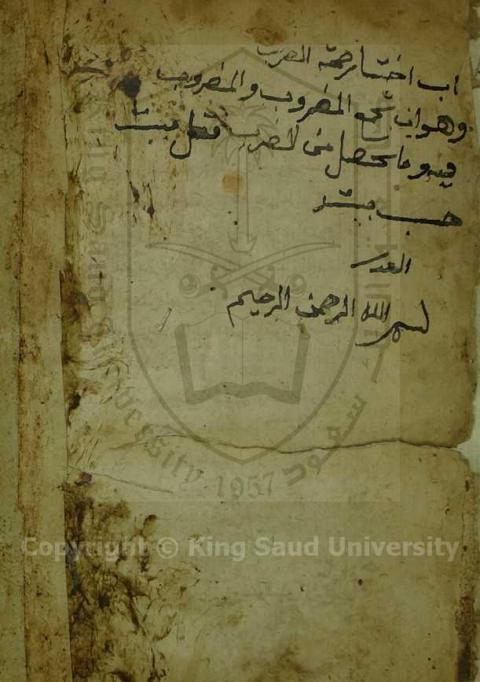 اب اختبار صحة الضرب
وهو ان تجمع المضروب والمضروب
فيه وما تحصل من الضرب
حسب
العدد
بسم الله الرحمن الرحيم
King Saud University
1957
Copyright © King Saud University